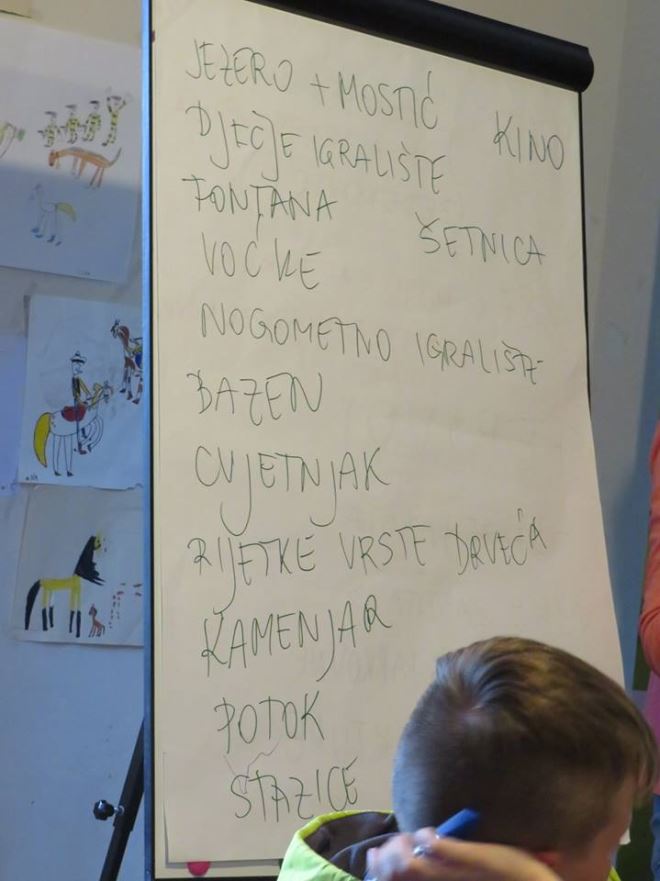 JEZERO + MOSTIĆ
KINO
DJEČJE IGRALIŠTE
FONTANA
ŠETNICA
VOĆKE
NOGOMETNO IGRALIŠTE
BAZEN
CVJETNJAK
RIJETKE VRSTE DRVEĆA
KAMENJAR
POTOK
STAZICE